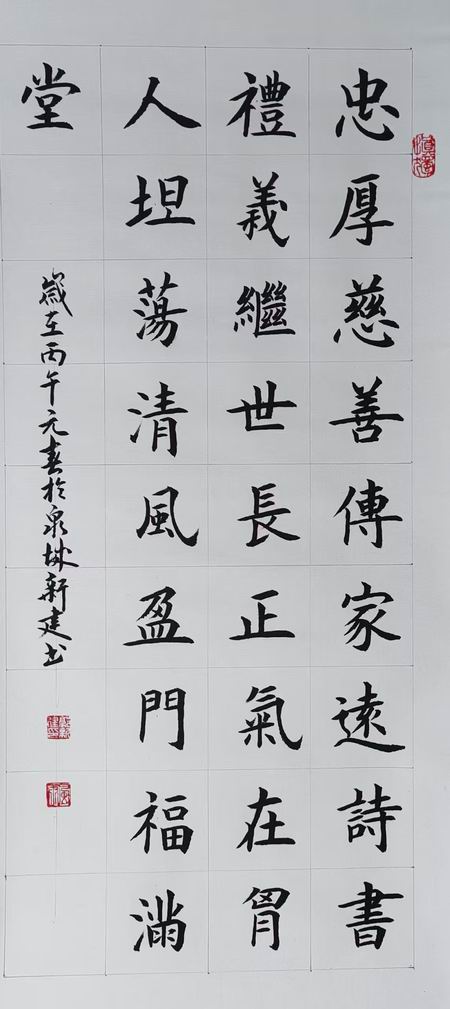 忠厚慈善傳家遠詩書
禮義繼世長正氣在胷
人坦蕩清風盈門福滿
堂
歲在丙午元春於泉城新建书